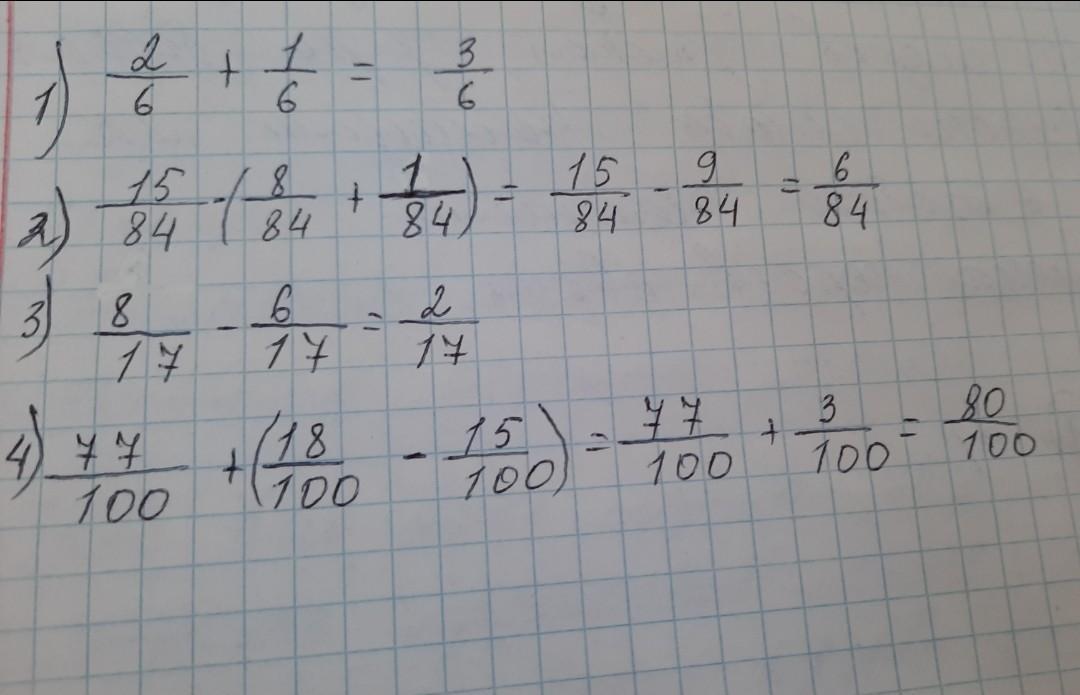 1) 2/6 + 1/6 = 3/6
2) 15/84 - (8/84 + 1/84) = 15/84 - 9/84 = 6/84
3) 8/17 - 6/17 = 2/17
4) 77/100 + (18/100 - 15/100) = 77/100 + 3/100 = 80/100